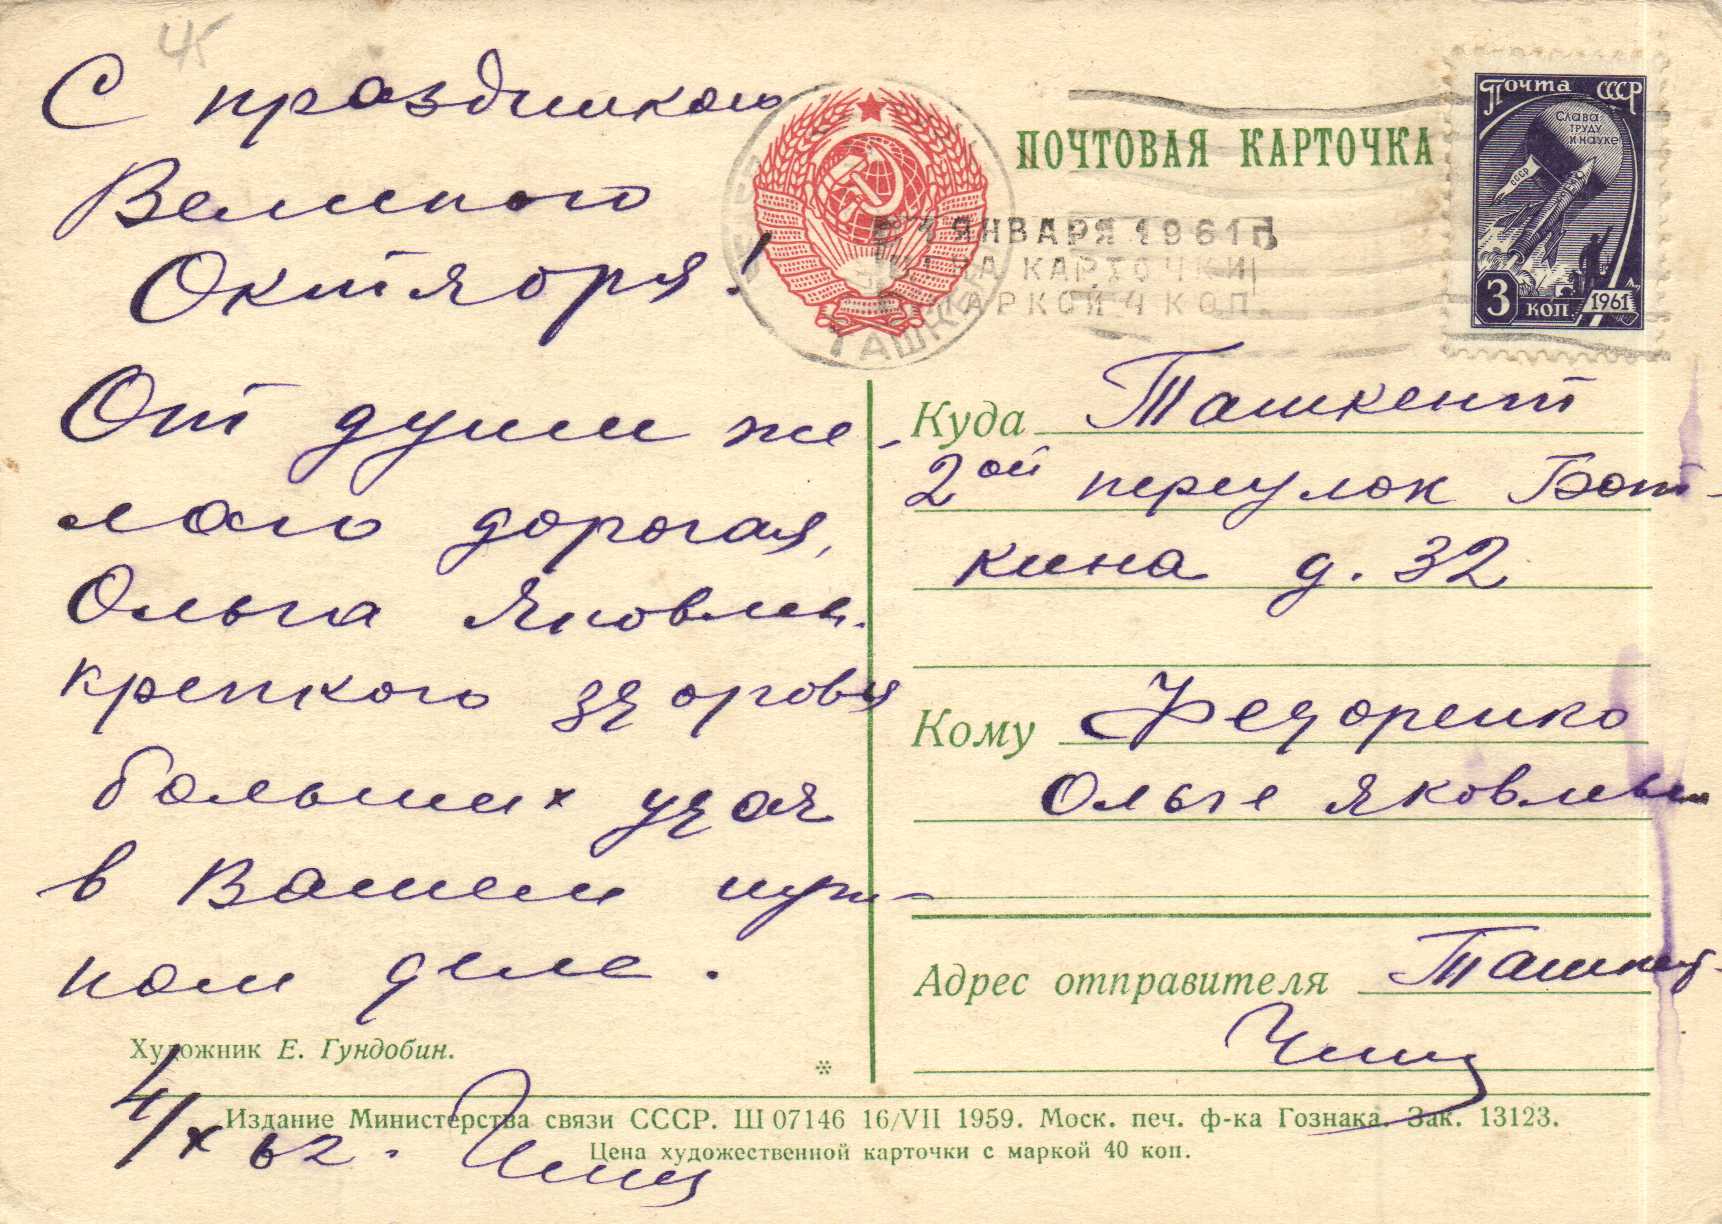 45
С праздником
Великого
Октября!
От души же-
лаю дорогая,
Ольга Яковлев.
крепкого здоровья
больших удач
в Вашем нуж-
ном деле.
Художник Е. Гундобин.
4/X 62.
ПОЧТОВАЯ КАРТОЧКА
Почта СССР
Слава
труду
и науке
СССР
3 коп. 1961
1 ЯНВАРЯ 1961 Г.
ЦЕНА КАРТОЧКИ
С МАРКОЙ 4 КОП.
ТАШКЕНТ
Куда Ташкент
2ой переулок Бот-
кина д. 32
Кому Федоренко
Ольге Яковлевне
Адрес отправителя Ташкент
Издание Министерства связи СССР. Ш 07146 16/VII 1959. Моск. печ. ф-ка Гознака. Зак. 13123.
Цена художественной карточки с маркой 40 коп.